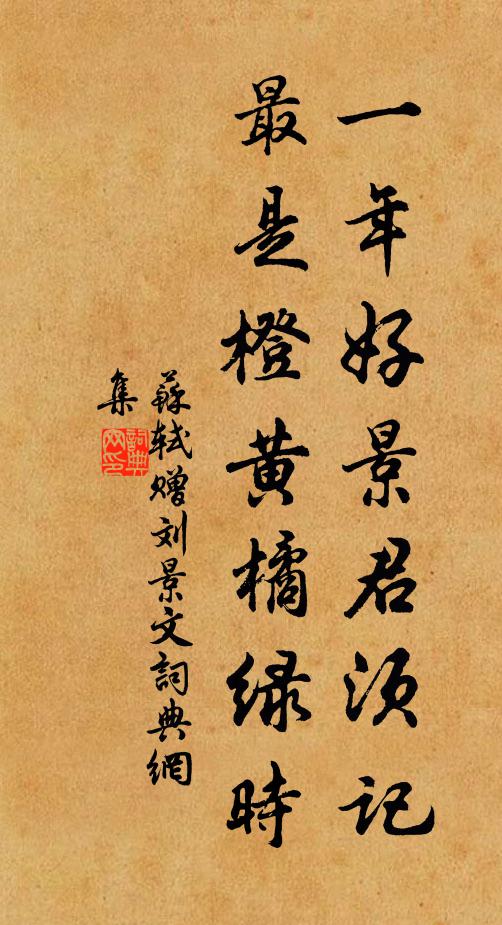 一年好景君须记
最是橙黄橘绿時
蘇軾赠刘景文詞典網
集
詞典网印